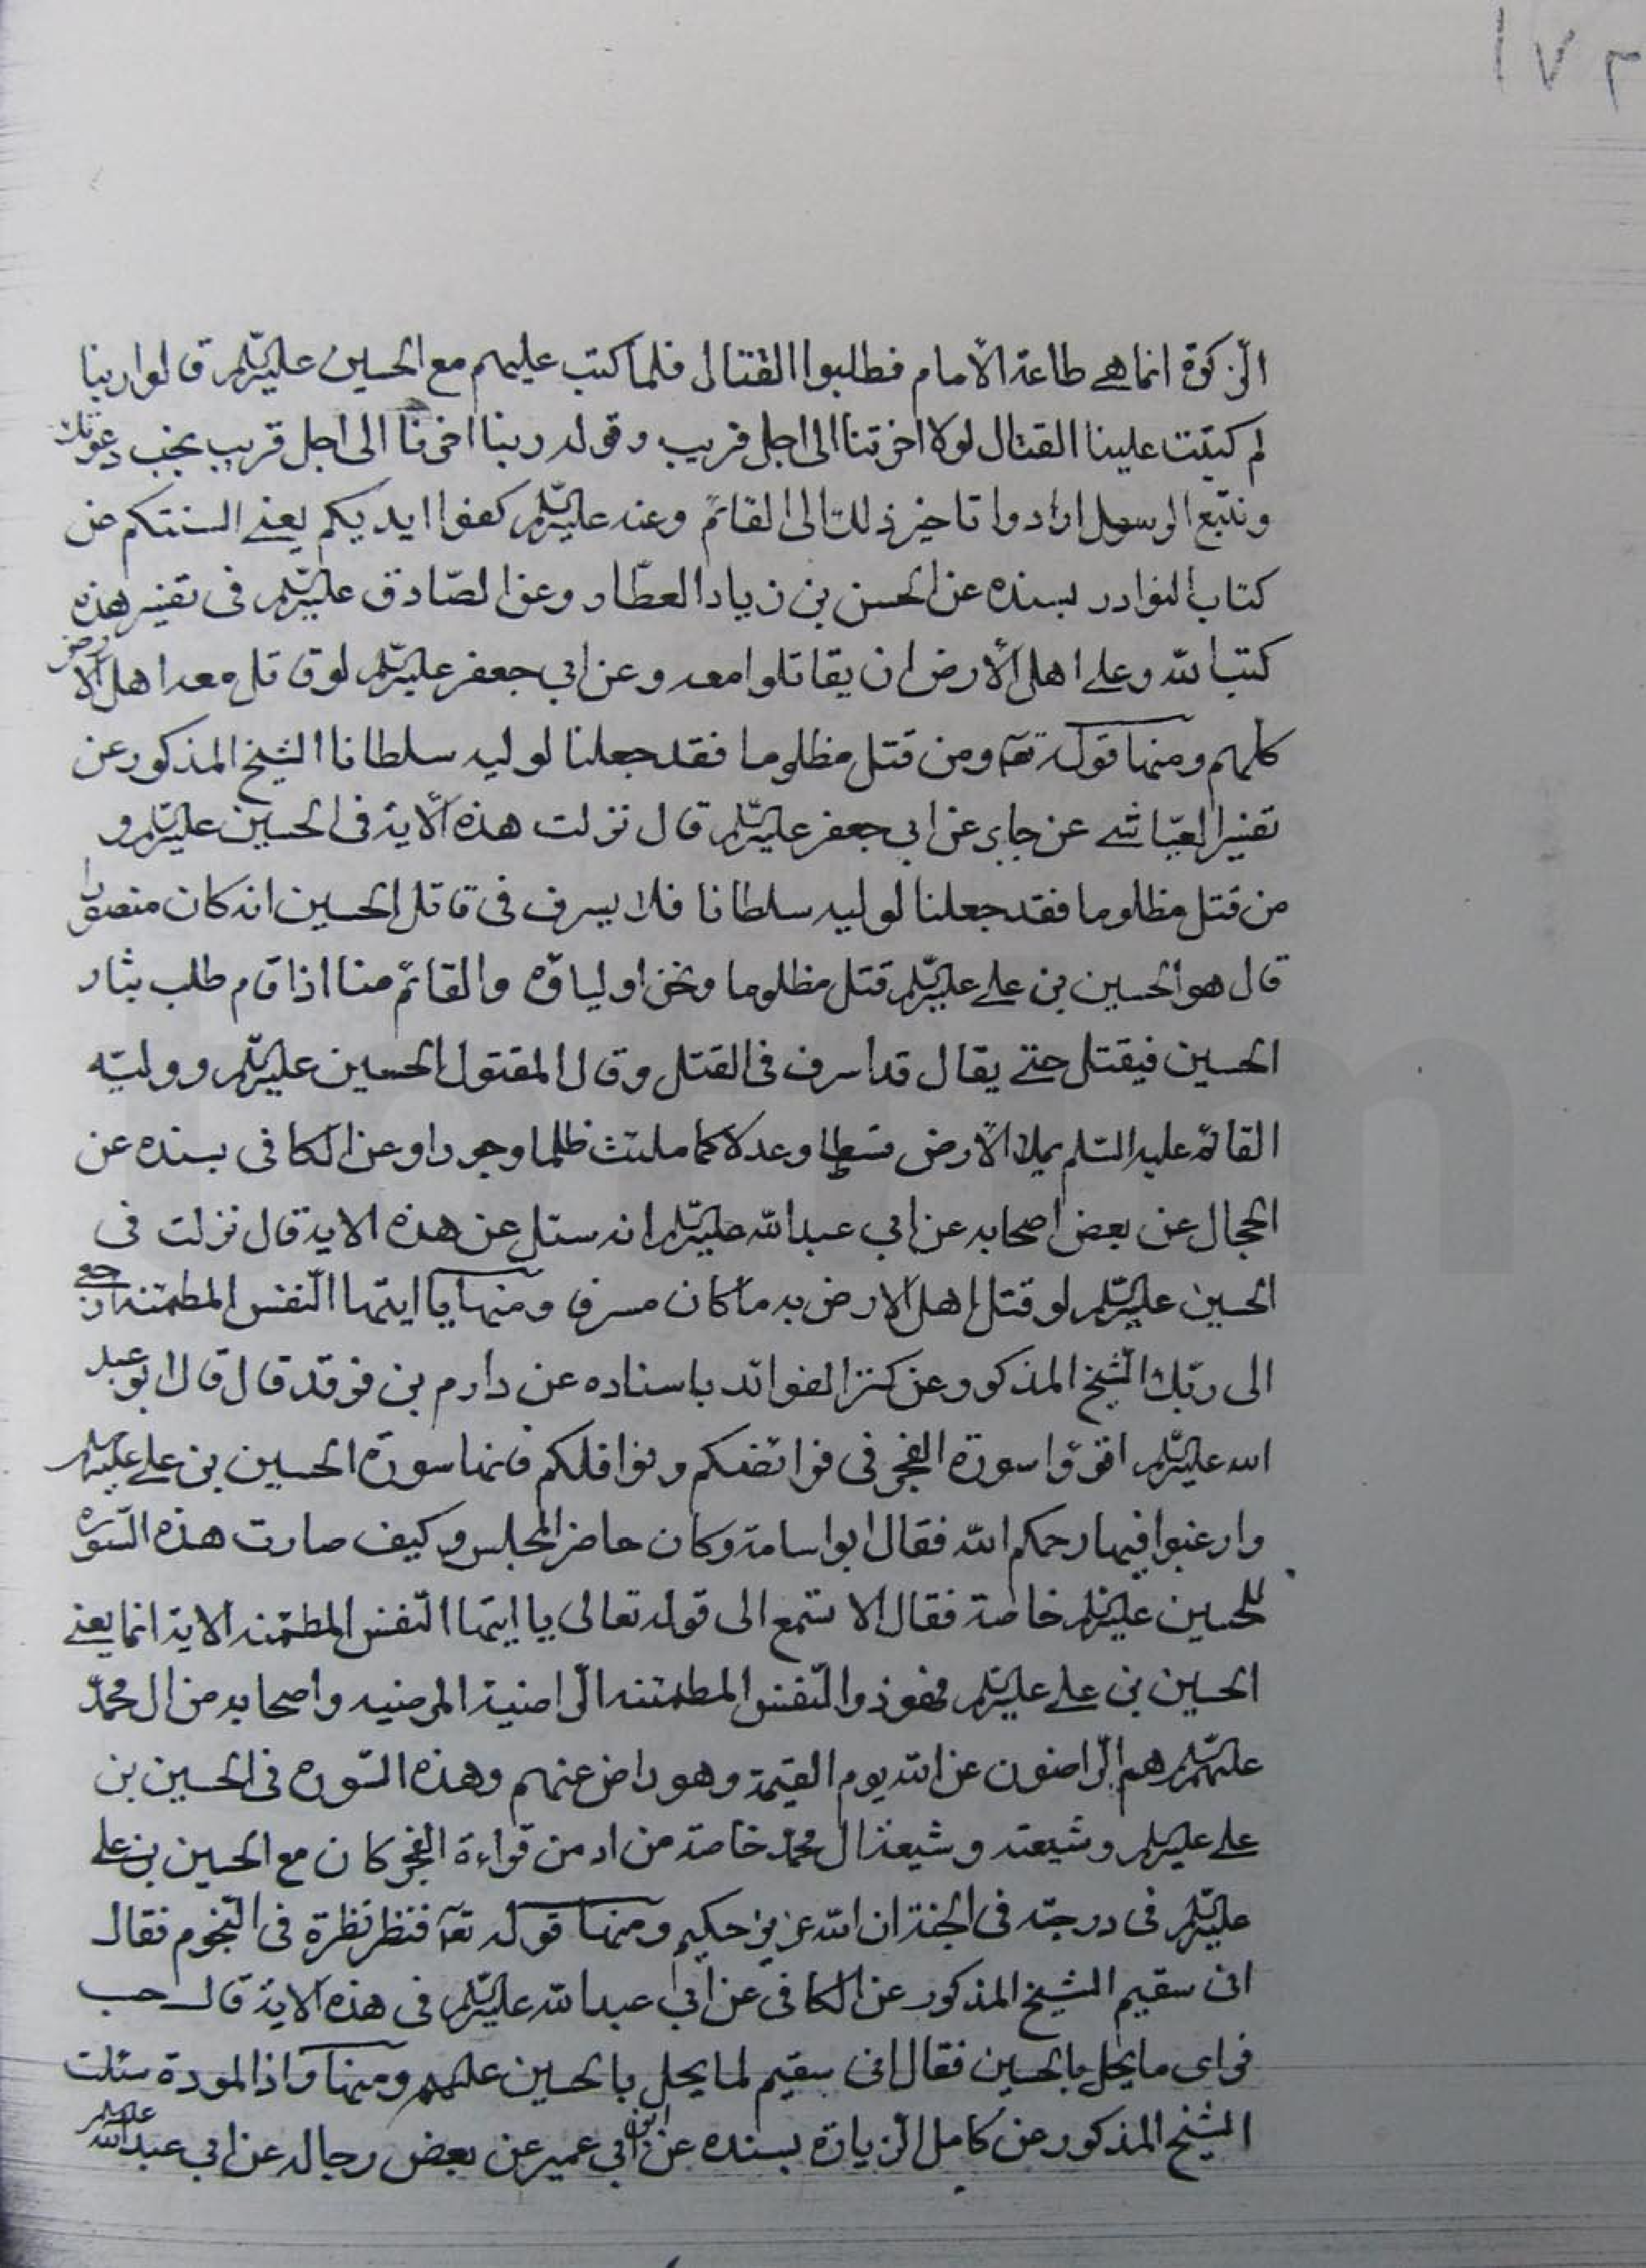 ١٧٣
الزكوة انما هي طاعة الأمام فطلبوا القتال فلما كتب عليهم مع الحسين عليه السلم قالوا ربنا
لم كتبت علينا القتال لولا اخرتنا الى اجل قريب وقوله ربنا اخرنا الى اجل قريب نجب دعوتك
ونتبع الرسول ارادوا تاخير ذلك الى القائم وعنه عليه السلم كفوا ايديكم يعني السنتكم عن
كتاب النوادر بسنده عن الحسن بن زياد العطار وعن الصّادق عليه السلم فى تفسير هذه
كتب الله وعلى اهل الأرض ان يقاتلوا معه وعن ابي جعفر عليه السلم لو قاتل معه اهل الارض
كلهم ومنها قوله تعه ومن قتل مظلوما فقد جعلنا لوليه سلطانا الشيخ المذكور عن
تفسير العيّاشي عن جابر عن ابي جعفر عليه السلم قال نزلت هذه الأية فى الحسين عليه السلم و
من قتل مظلوما فقد جعلنا لوليه سلطانا فلا يسرف فى قاتل الحسين انه كان منصورا
قال هو الحسين بن علي عليه السلم قتل مظلوما ونحن اولياؤه والقائم منا اذا قام طلب بثار
الحسين فيقتل حتى يقال قد اسرف فى القتل وقال المقتول الحسين عليه السلم ووليّه
القائم عليه السلم يملا الأرض قسطا وعدلا كما ملئت ظلما وجورا وعن الكافى بسنده عن
الحجال عن بعض اصحابه عن ابي عبد الله عليه السلم انه سئل عن هذه الاية قال نزلت فى
الحسين عليه السلم لو قتل اهل الارض به ما كان مسرف ومنها يا ايتها النّفس المطمئنه ارجعي
الى ربّك الشيخ المذكور وعن كنز الفوائد باسناده عن دارم بن فرقد قال قال ابو عبد
الله عليه السلم اقرؤا سورة الفجر فى فرائضكم ونوافلكم فانها سورة الحسين بن علي عليه السلم
وارغبوا فيها رحمكم الله فقال ابو اسامة وكان حاضر المجلس وكيف صارت هذه السّوره
للحسين عليه السلم خاصة فقال الا تستمع الى قوله تعالى يا ايتها النّفس المطمئنه الاية انما يعني
الحسين بن علي عليه السلم فهو ذو النّفس المطمئنه الرّاضية المرضيه واصحابه من ال محمّد
عليهم السلم هم الرّاضون عن الله يوم القيمة وهو راض عنهم وهذه السّوره فى الحسين بن
علي عليه السلم وشيعته وشيعة ال محمّد خاصة من ادمن قراءة الفجر كان مع الحسين بن علي
عليه السلم فى درجته فى الجنة ان الله عزيز حكيم ومنها قوله تعه فنظر نظرة فى النّجوم فقال
انى سقيم الشيخ المذكور عن الكافى عن ابي عبد الله عليه السلم فى هذه الاية قال حسب
فراى ما يحل بالحسين فقال انى سقيم لما يحل بالحسين عليهم ومنها واذا المودة سئلت
الشيخ المذكور عن كامل الزيارة بسنده عن ابن ابي عمير عن بعض رجاله عن ابي عبد الله عليه السلم